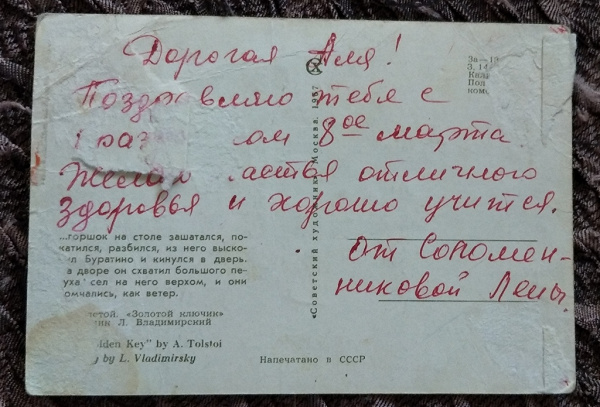 Дорогая Аля!
Поздр вляю тебя с
раз ом 8ое марта
Желаю астья отличного
здоровья и хорошо учится.
от Соломен-
никовой Лены.
...горшок на столе зашатался, по-
катился, разбился, из него выско-
ил Буратино и кинулся в дверь.
а дворе он схватил большого пе-
уха сел на него верхом, и они
омчались, как ветер.
лстой. «Золотой ключик»
ник Л. Владимирский
lden Key" by A. Tolstoi
by L. Vladimirsky
«Советский художник» Москва. 1967
Напечатано в СССР
За—1
З. 14
Кали
Пол
номе